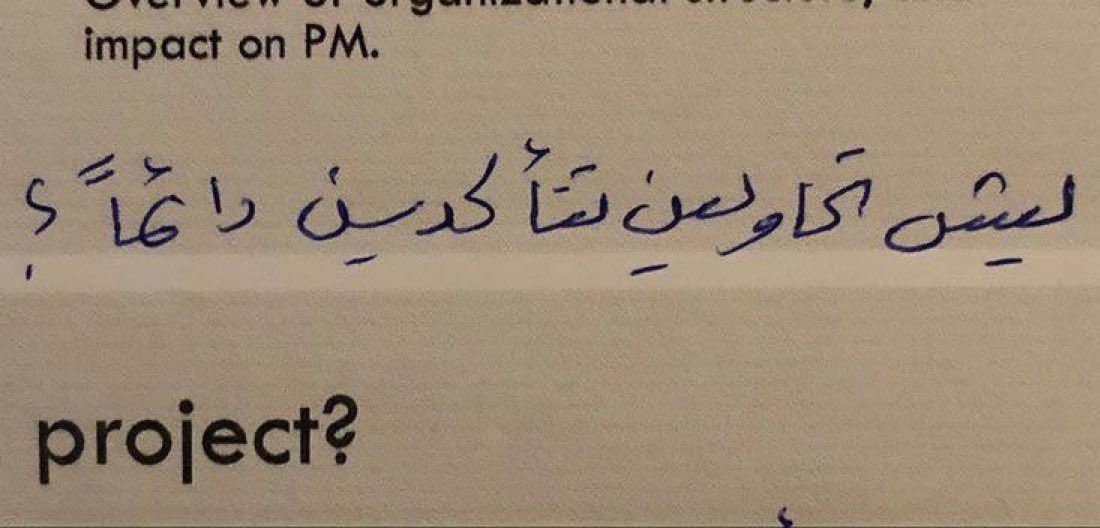 impact on PM.
ليش تحاولين تتأكدين دائماً؟
project?